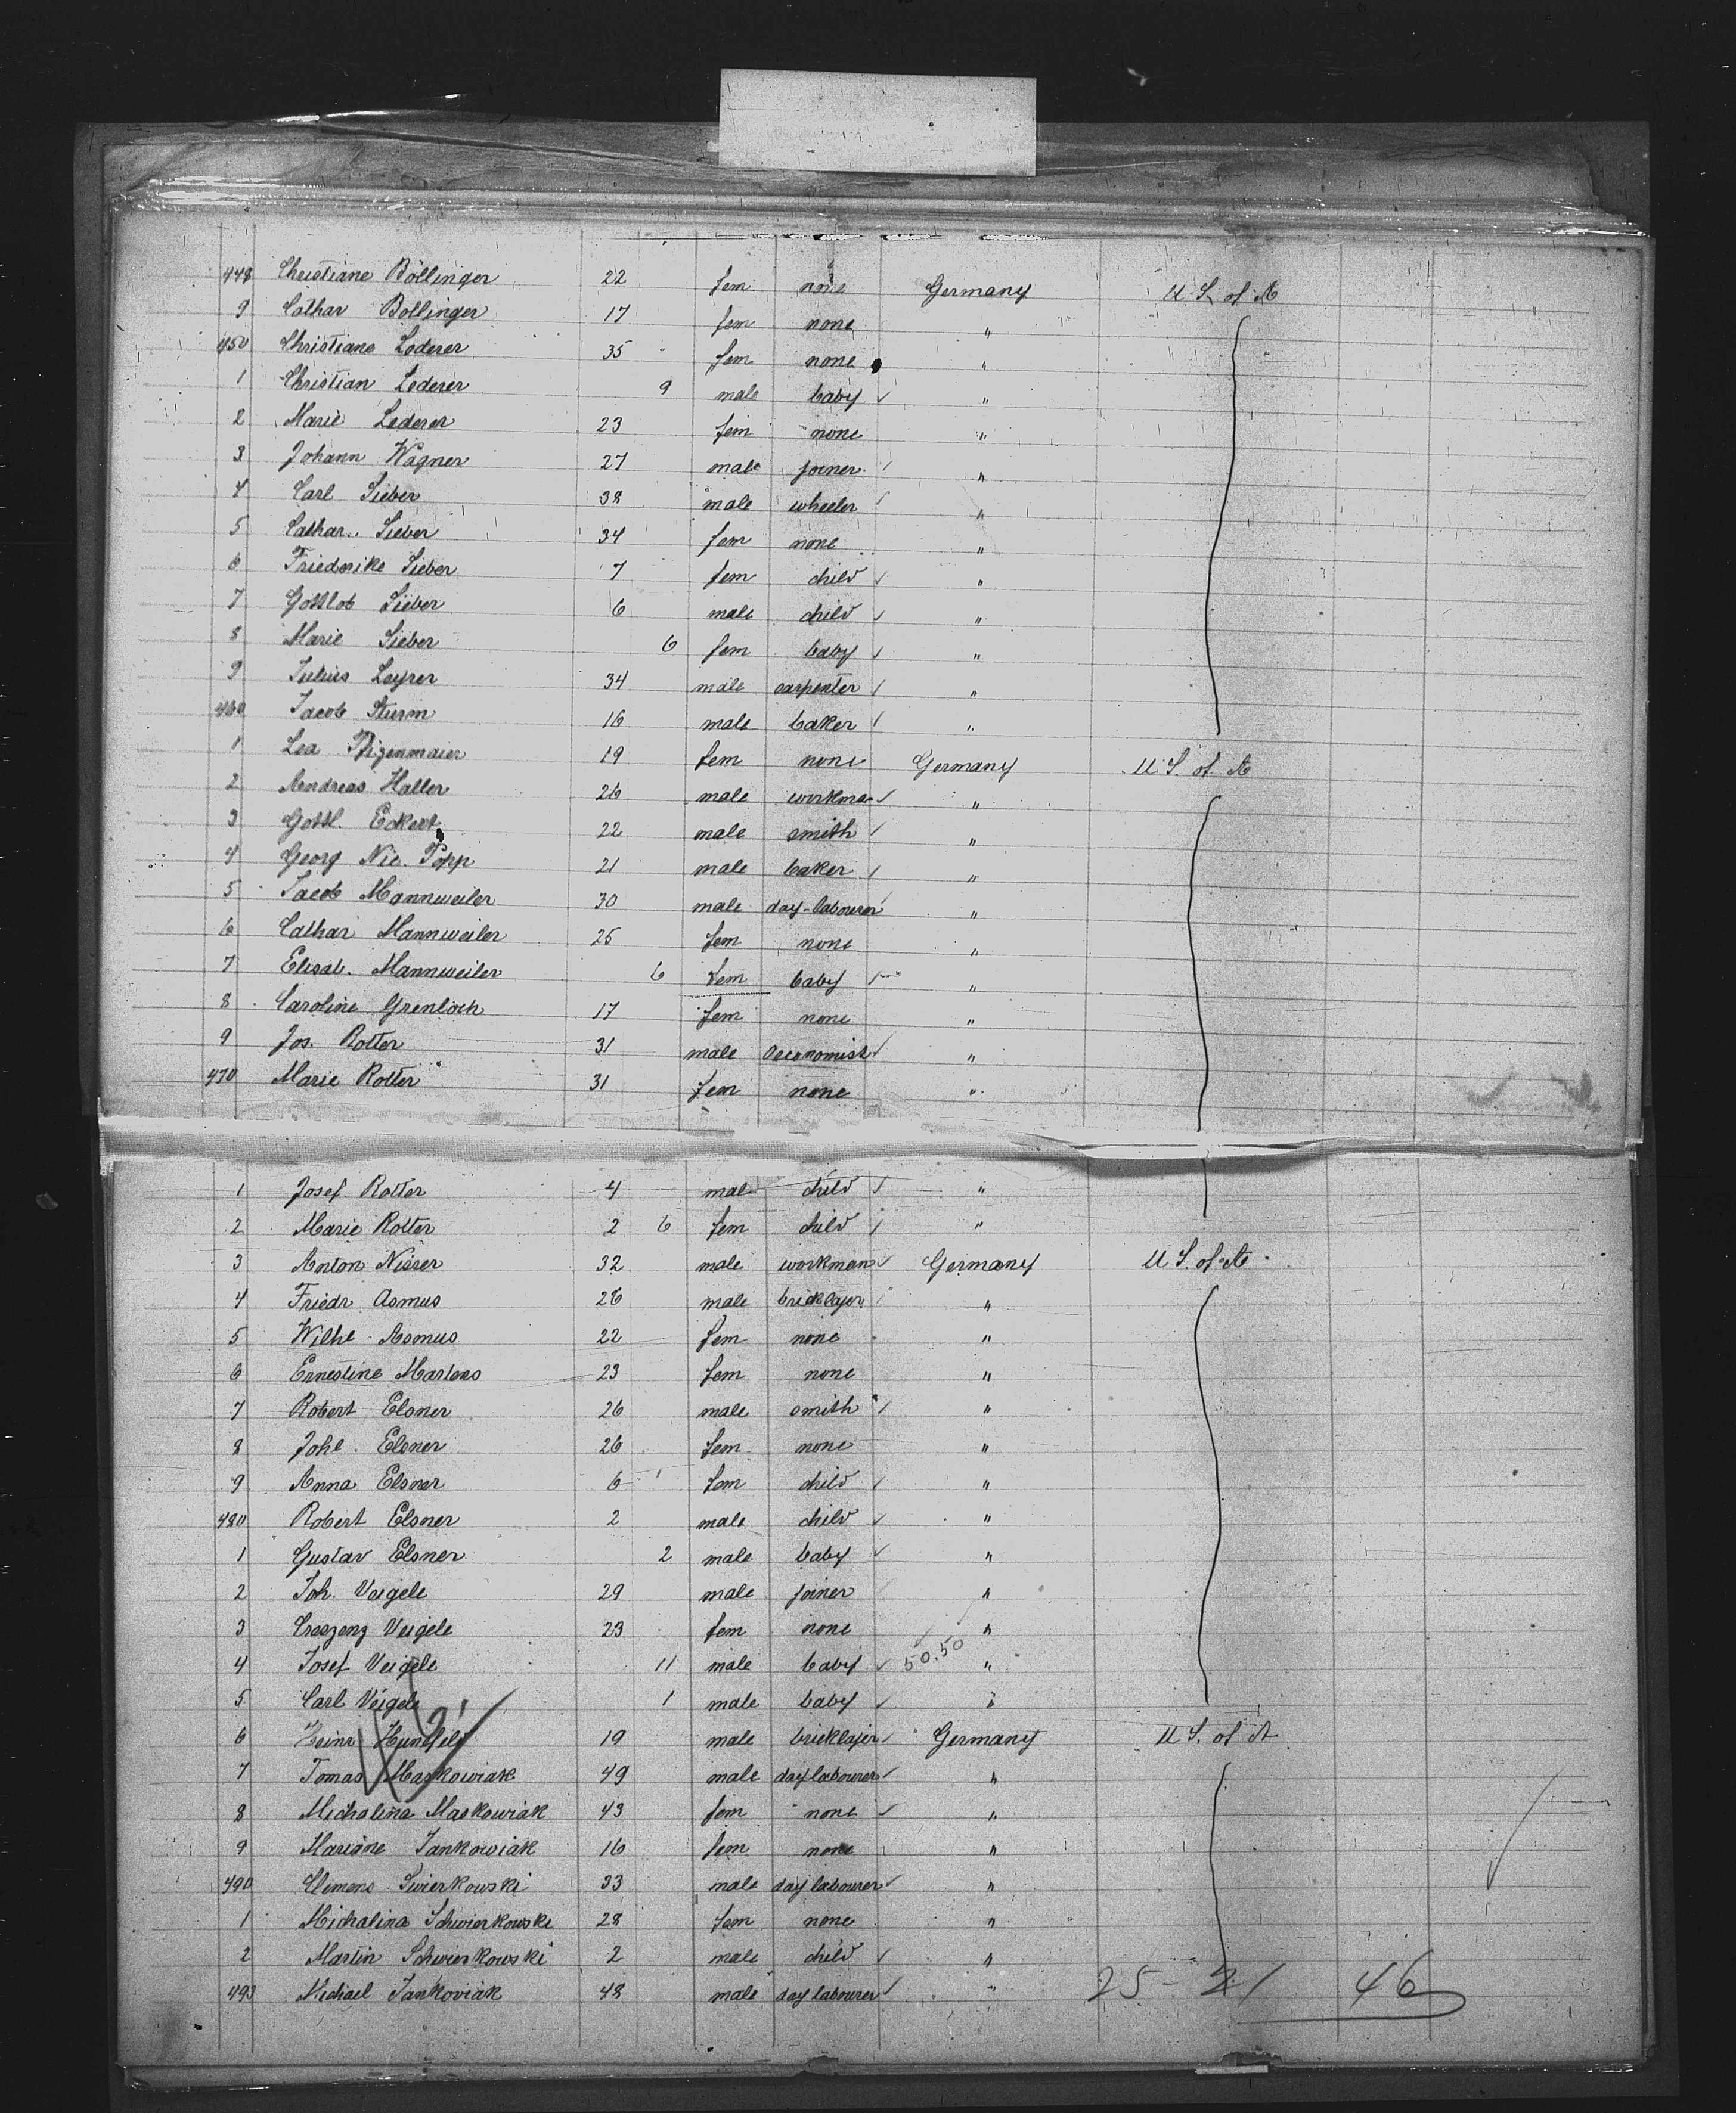 448 Christiane Bollinger 22 fem none Germany U. S. of A
9 Cathar Bollinger 17 fem none "
450 Christiane Lederer 35 fem none "
1 Christian Lederer 9 male baby "
2 Marie Lederer 23 fem none "
3 Johann Wagner 27 male joiner "
4 Carl Sieber 38 male wheeler "
5 Cathar. Sieber 34 fem none "
6 Friederike Sieber 7 fem child "
7 Gottlob Sieber 6 male child "
8 Marie Sieber 6 fem baby "
9 Julius Leyrer 34 male carpenter "
460 Jacob Sturm 16 male baker "
1 Lea 19 fem none Germany U. S. of A
2 Andreas Haller 26 male workman "
3 Gottl. Eckert 22 male smith "
4 Georg Nic. Popp 21 male baker "
5 Jacob Mannweiler 30 male day-labourer "
6 Cathar Mannweiler 25 fem none "
7 Elisab. Mannweiler 6 fem baby "
8 Caroline Grenloch 17 fem none "
9 Jos. Rotter 31 male Oeconomist "
470 Marie Rotter 31 fem none "
1 Josef Rotter 4 male child "
2 Marie Rotter 2 6 fem child "
3 Anton Nisser 32 male workman Germany U. S. of A
4 Friedr Asmus 26 male bricklajer "
5 Wilhe Asmus 22 fem none "
6 Ernestine Martens 23 fem none "
7 Robert Elsner 26 male smith "
8 Johe. Elsner 26 fem none "
9 Anna Elsner 6 fem child "
480 Robert Elsner 2 male child "
1 Gustav Elsner 2 male baby "
2 Joh. Veigele 29 male joiner "
3 Creszenz Veigele 23 fem none "
4 Josef Veigele 11 male baby 50.50 "
5 Carl Veigele 1 male baby "
6 Heinr Hundfeld 19 male bricklajer Germany U. S. of A
7 Tomas Maskowiak 49 male day labourer "
8 Michalina Maskowiak 43 fem none "
9 Mariane Jankowiak 16 fem none "
490 Clemens Swierkowski 33 male day labourer "
1 Michalina Schwierkowski 28 fem none "
2 Martin Schwierkowski 2 male child "
493 Michael Jankoviak 48 male day labourer " 25 - 21 46